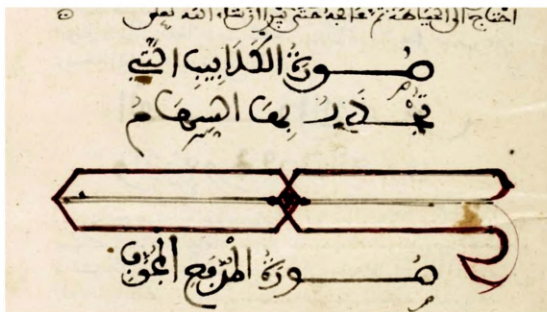 احتاج الى الخياطة ثم تعالجه حتى يبرا ان شاء الله تعلى
صورة الكلاليب التي
تجذب بها السهام
صورة المدفع المجوف